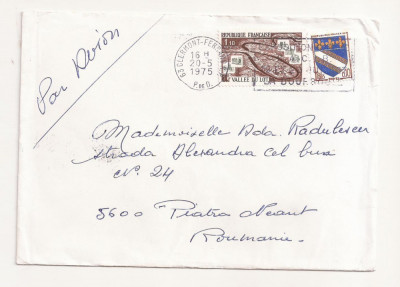 Par Avion
63 CLERMONT-FERRAND
16 H
20-5
1975
P. DE D.
REPUBLIQUE FRANCAISE
1,40
VALLEE DU LOT
Mademoiselle Ada. Radulescu
strada Alexandru cel bun
N° 24
5600 Piatra Neamt
Roumanie.